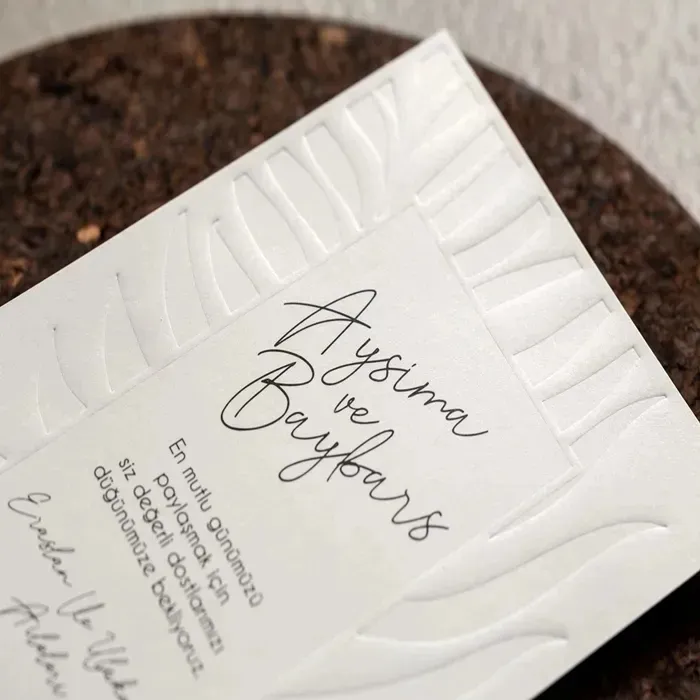 Aysima
ve
Baybars
En mutlu günümüzü
paylaşmak için
siz değerli dostlarımızı
düğünümüze bekliyoruz.
Eraslan Ve
Aileleri